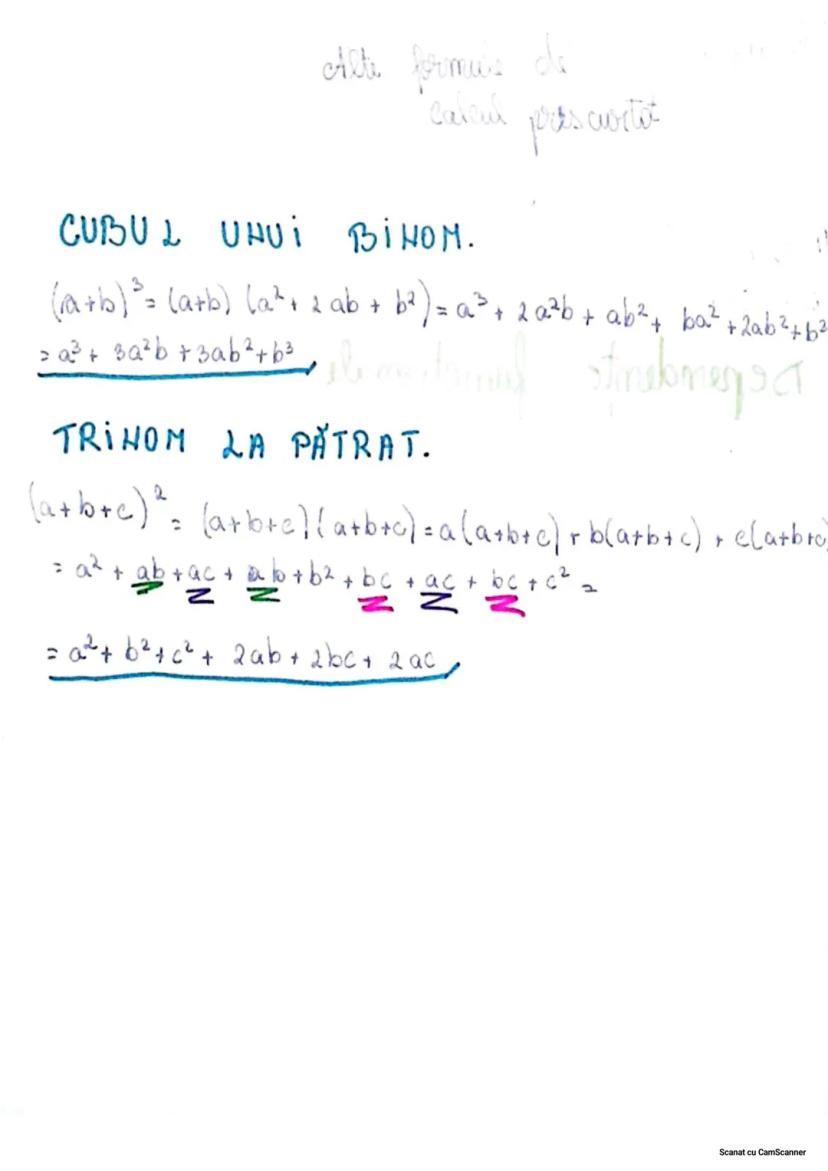 Alte formule de
calcul prescurtat
CUBUL UNUI BINOM.
(a+b)³ = (a+b) (a² + 2ab + b²) = a³ + 2a²b + ab² + ba² + 2ab² + b²
= a³ + 3a²b + 3ab² + b³
TRINOM LA PĂTRAT.
(a+b+c)² = (a+b+c)(a+b+c) = a(a+b+c) + b(a+b+c) + c(a+b+c
= a² + ab + ac + ab + b² + bc + ac + bc + c² =
= a² + b² + c² + 2ab + 2bc + 2ac
Scanat cu CamScanner